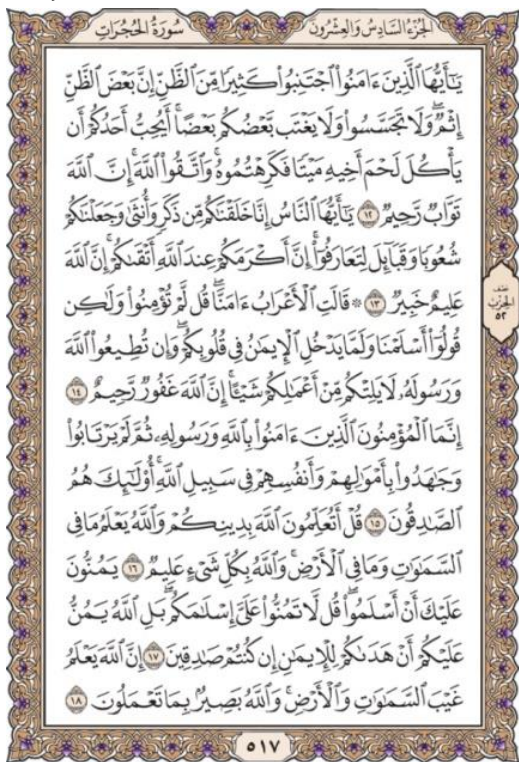 سُورَةُ الْحُجُرَاتِ
الْجُزْءُ السَّادِسُ وَالْعِشْرُونَ
يَٰٓأَيُّهَا ٱلَّذِينَ ءَامَنُواْ ٱجْتَنِبُواْ كَثِيرًا مِّنَ ٱلظَّنِّ إِنَّ بَعْضَ ٱلظَّنِّ
إِثْمٌۖ وَلَا تَجَسَّسُواْ وَلَا يَغْتَب بَّعْضُكُم بَعْضًاۚ أَيُحِبُّ أَحَدُكُمْ أَن
يَأْكُلَ لَحْمَ أَخِيهِ مَيْتًا فَكَرِهْتُمُوهُۚ وَٱتَّقُواْ ٱللَّهَۚ إِنَّ ٱللَّهَ
تَوَّابٌ رَّحِيمٌ ١٢ يَٰٓأَيُّهَا ٱلنَّاسُ إِنَّا خَلَقْنَٰكُم مِّن ذَكَرٍ وَأُنثَىٰ وَجَعَلْنَٰكُمْ
شُعُوبًا وَقَبَآئِلَ لِتَعَارَفُوٓاْۚ إِنَّ أَكْرَمَكُمْ عِندَ ٱللَّهِ أَتْقَىٰكُمْۚ إِنَّ ٱللَّهَ
عَلِيمٌ خَبِيرٌ ١٣ ۞ قَالَتِ ٱلْأَعْرَابُ ءَامَنَّاۖ قُل لَّمْ تُؤْمِنُواْ وَلَٰكِن
قُولُوٓاْ أَسْلَمْنَا وَلَمَّا يَدْخُلِ ٱلْإِيمَٰنُ فِى قُلُوبِكُمْۖ وَإِن تُطِيعُواْ ٱللَّهَ
وَرَسُولَهُۥ لَا يَلِتْكُم مِّنْ أَعْمَٰلِكُمْ شَيْـًٔاۚ إِنَّ ٱللَّهَ غَفُورٌ رَّحِيمٌ ١٤
إِنَّمَا ٱلْمُؤْمِنُونَ ٱلَّذِينَ ءَامَنُواْ بِٱللَّهِ وَرَسُولِهِۦ ثُمَّ لَمْ يَرْتَابُواْ
وَجَٰهَدُواْ بِأَمْوَٰلِهِمْ وَأَنفُسِهِمْ فِى سَبِيلِ ٱللَّهِۚ أُوْلَٰٓئِكَ هُمُ
ٱلصَّٰدِقُونَ ١٥ قُلْ أَتُعَلِّمُونَ ٱللَّهَ بِدِينِكُمْ وَٱللَّهُ يَعْلَمُ مَا فِى
ٱلسَّمَٰوَٰتِ وَمَا فِى ٱلْأَرْضِۚ وَٱللَّهُ بِكُلِّ شَىْءٍ عَلِيمٌ ١٦ يَمُنُّونَ
عَلَيْكَ أَنْ أَسْلَمُواْۖ قُل لَّا تَمُنُّواْ عَلَىَّ إِسْلَٰمَكُمۖ بَلِ ٱللَّهُ يَمُنُّ
عَلَيْكُمْ أَنْ هَدَىٰكُمْ لِلْإِيمَٰنِ إِن كُنتُمْ صَٰدِقِينَ ١٧ إِنَّ ٱللَّهَ يَعْلَمُ
غَيْبَ ٱلسَّمَٰوَٰتِ وَٱلْأَرْضِۚ وَٱللَّهُ بَصِيرٌۢ بِمَا تَعْمَلُونَ ١٨
نصف
الحزب
٥٢
٥١٧